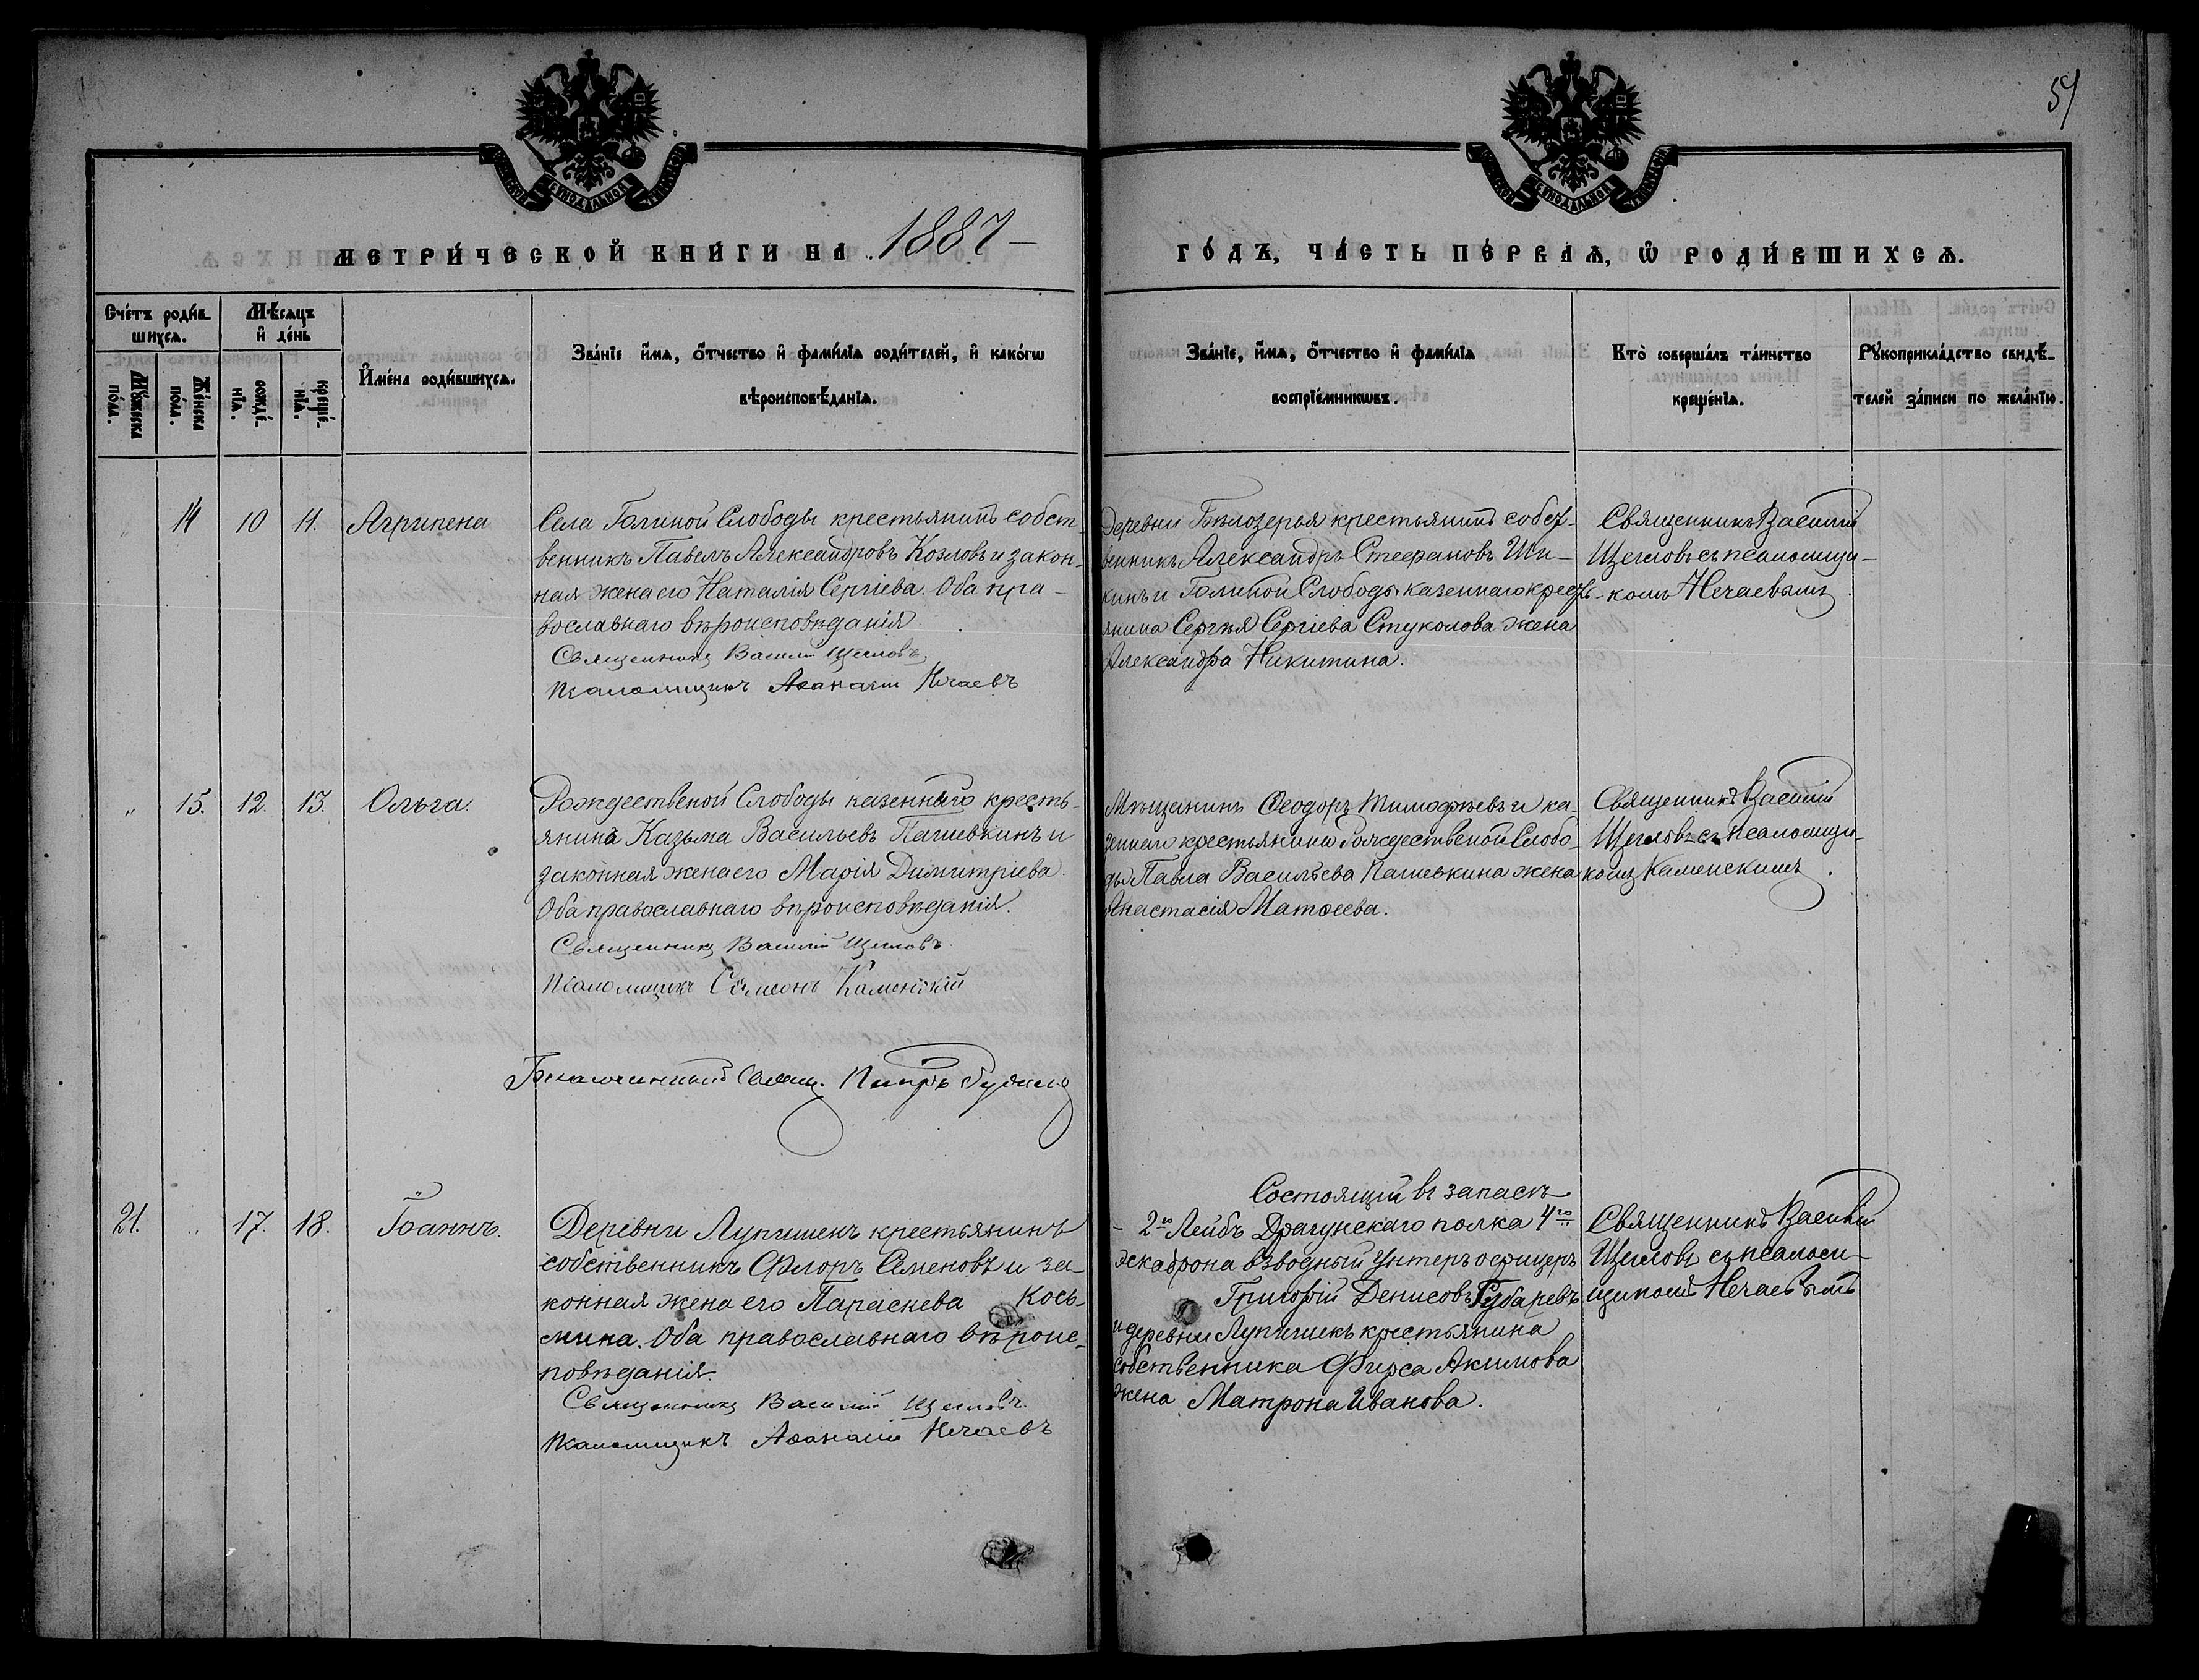 57
МЕТРИ́ЧЕСКОЙ КНИ́ГИ НА 1887 ГО́ДЪ, ЧА́СТЬ ПЕ́РВАѦ, Ѡ РОДИ́ВШИХСѦ.
Сче́тъ роди́в-
шихсѧ.
Мꙋ́жеска
по́ла.
Же́нска
по́ла.
Мѣ́сѧцъ
и҆ де́нь
рожде́-
нїѧ.
креще́-
нїѧ.
И҆мена̀ роди́вшихсѧ.
Зва́нїе и҆́мѧ, ѻ҆́тчество и҆ фами́лїѧ роди́телей, и҆ како́гѡ
вѣроисповѣ́данїѧ.
Зва́нїе, и҆́мѧ, ѻ҆́тчество и҆ фами́лїѧ
воспрїе́мникѡвъ.
Кто̀ соверша́лъ та́инство
креще́нїѧ.
Рꙋкоприкла́дство свидѣ́-
телей за́писи по жела́нїю.
„ 14 10 11. Агрипена
Села Голиной Слободы крестьянинъ собст-
венникъ Павелъ Александровъ Козловъ и закон-
ная жена его Наталія Сергіева. Оба пра-
вославнаго вѣроисповѣданія
Священникъ Василій Щегловъ.
Псаломщикъ Аѳанасій Нечаевъ
Деревни Бѣлозерья крестьянинъ собст-
венникъ Александръ Стефановъ Ши-
кинъ и Голиной Слободы казеннаго кресть-
янина Сергѣя Сергіева Стуколова жена
Александра Никитина.
Священникъ Василій
Щегловъ съ псаломщи-
комъ Нечаевымъ
„ 15. 12. 13. Ольга.
Рождественой Слободы казеннаго кресть-
янина Казьма Васильевъ Пашевкинъ и
законная жена его Марія Димитріева.
Оба православнаго вѣроисповѣданія.
Священникъ Василій Щегловъ.
Псаломщикъ Сѵмеонъ Каменскій
Мѣщанинъ Ѳеодоръ Тимофѣевъ и ка-
зеннаго крестьянина Рождественой Слобо-
ды Павла Васильева Пашевкина жена
Анастасія Матѳеева.
Священникъ Василій
Щегловъ съ псаломщи-
комъ Каменскимъ.
Благочинный Свящ. Петръ
21. „ 17. 18. Іоаннъ.
Деревни Лупишекъ крестьянинъ
собственникъ Флоръ Семеновъ и за-
конная жена его Параскева Кось-
мина. Оба православнаго вѣроис-
повѣданія.
Священникъ Василій Щегловъ.
Псаломщикъ Аѳанасій Нечаевъ
Состоящій въ запасѣ
2го Лейбъ Драгунскаго полка 4го
эскадрона взводный Унтеръ офицеръ
Григорій Денисовъ Губаревъ
и деревни Лупишекъ крестьянина
собственника Фирса Акимова
жена Матрона Иванова.
Священникъ Василій
Щегловъ съ псалом-
щикомъ Нечаевымъ